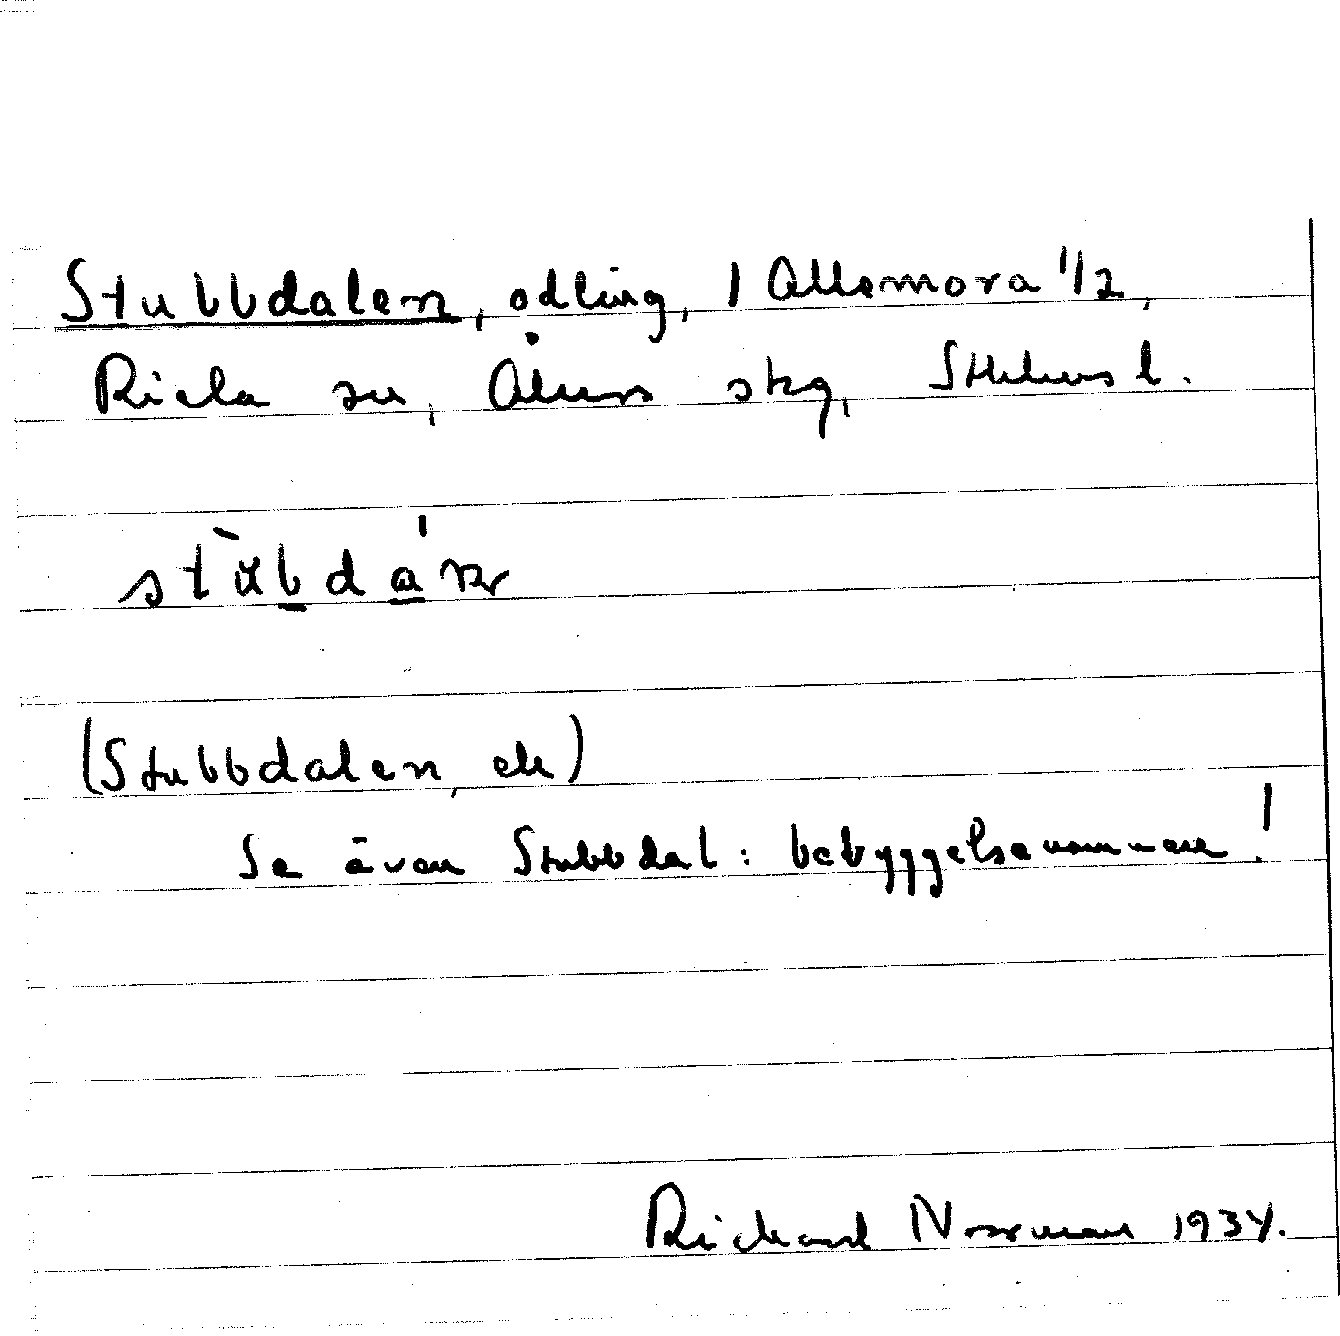 Stubbdalen, odling, 1 Allemora 1/2,
Riala sn, Åkers skg, Sthlms l.
(Stubbdalen, ek)
Se även Stubbdal: bebyggelsenamnen!
Richard Norrman 1934.